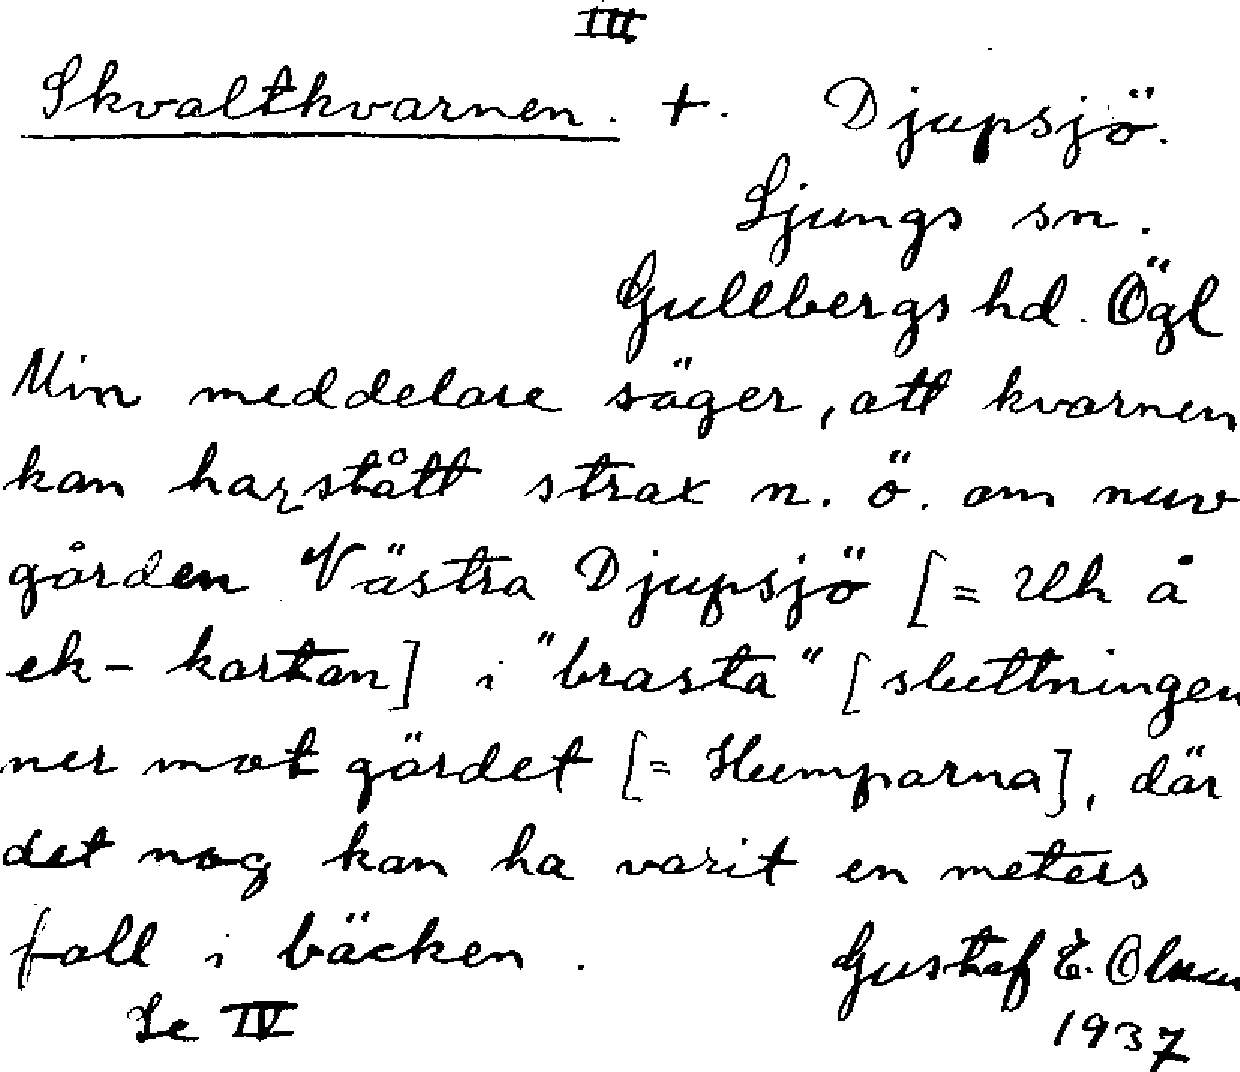 III
Skvaltkvarnen. +. Djupsjö.
Ljungs sn.
Gullbergs hd. Ögl
Min meddelare säger, att kvarnen
kan ha stått strax n. ö. om nuv
gården Västra Djupsjö [= Uh å
ek-kartan] i "brasta" [sluttningen
ner mot gärdet [= Humparna], där
det nog kan ha varit en meters
fall i bäcken.
Gustaf E. Olsson
Se IV
1937